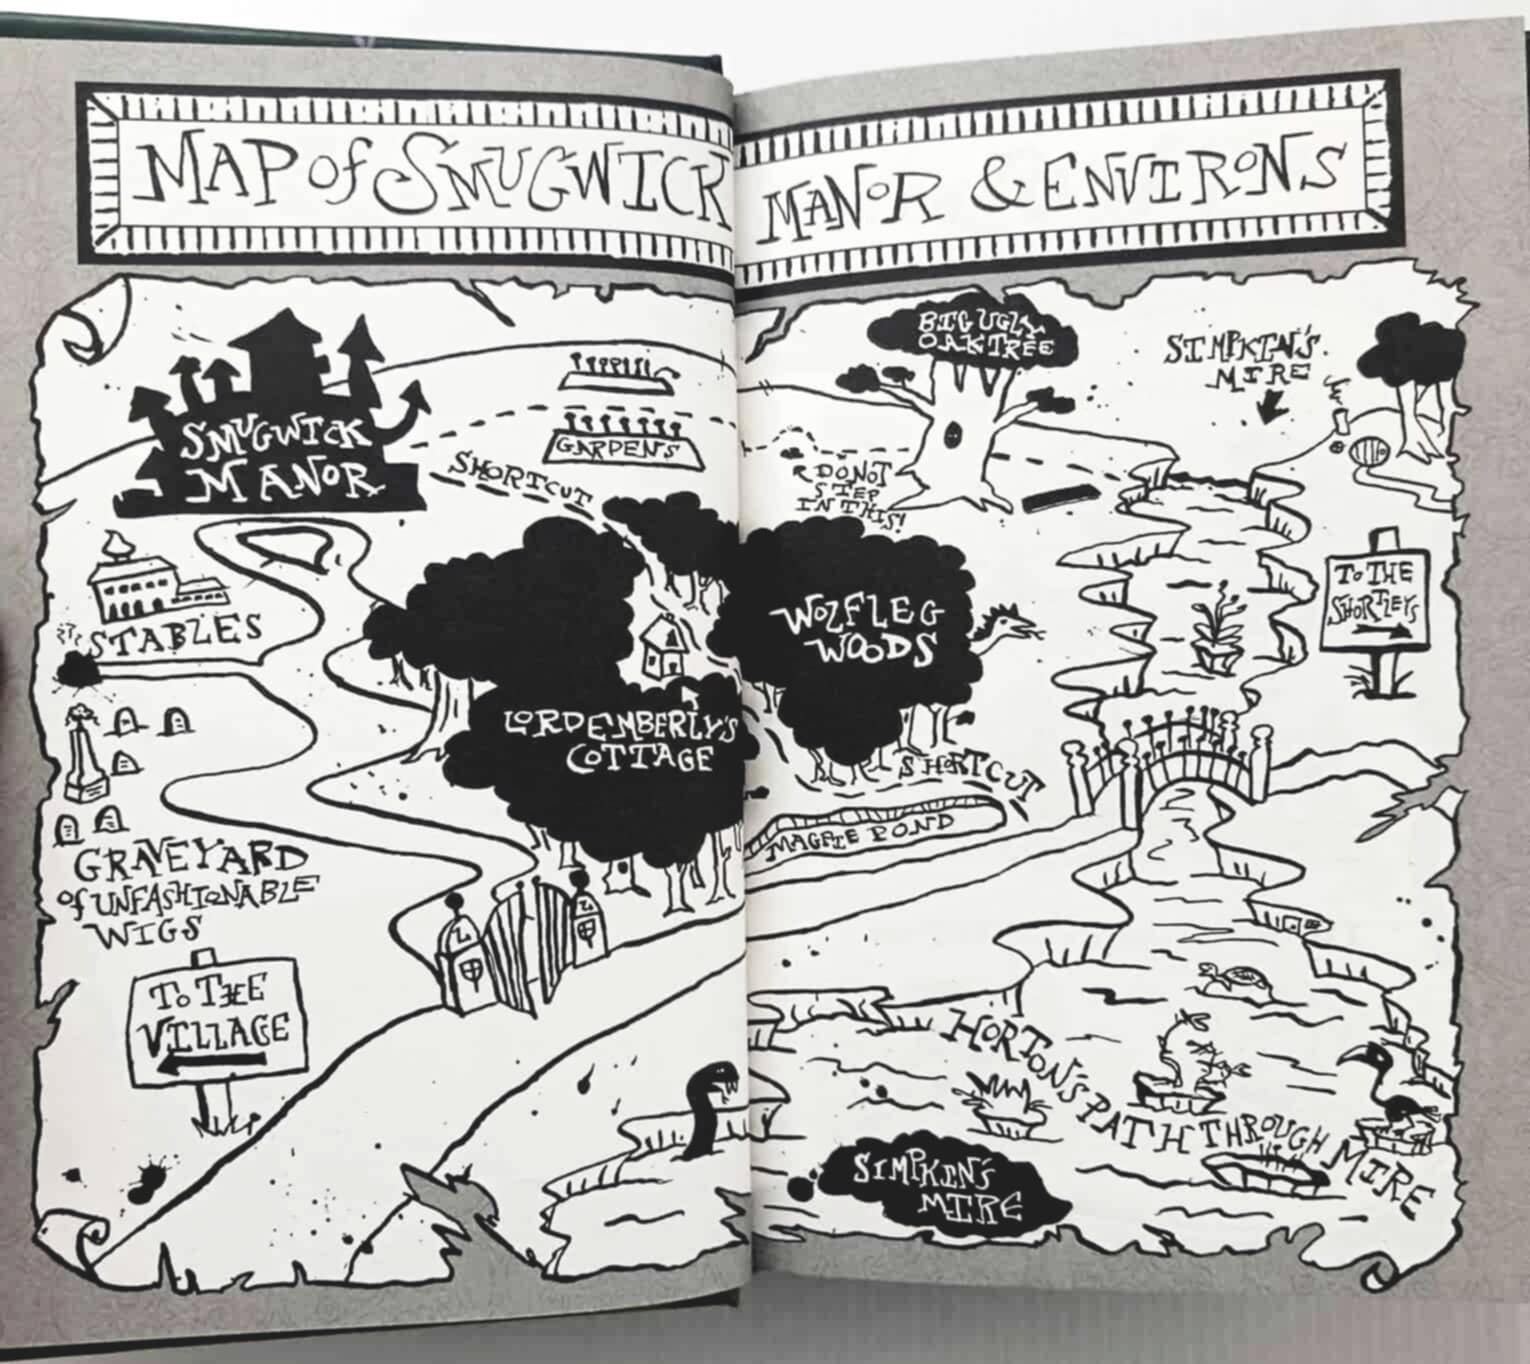 MAP of SMUGWICK MANOR & ENVIRONS
SMUGWICK
MANOR
SHORTCUT
GARDENS
DO NOT
STEP
IN THIS!
BIG UGLY
OAK TREE
SIMPKIN'S
MIRE
STABLES
WOLFLEG
WOODS
TO THE
SHORTLEYS
LORD EMBERLY'S
COTTAGE
SHORTCUT
MAGPIE POND
GRAVEYARD
of UNFASHIONABLE
WIGS
L
L
TO THE
VILLAGE
HORTON'S PATH THROUGH MIRE
SIMPKIN'S
MIRE